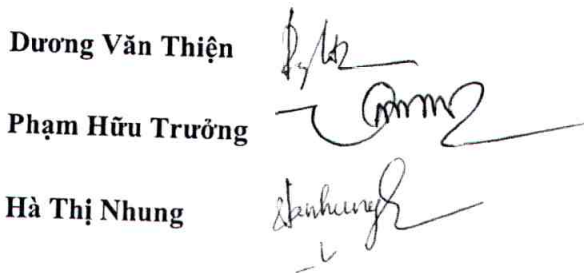 Dương Văn Thiện
Phạm Hữu Trưởng
Hà Thị Nhung